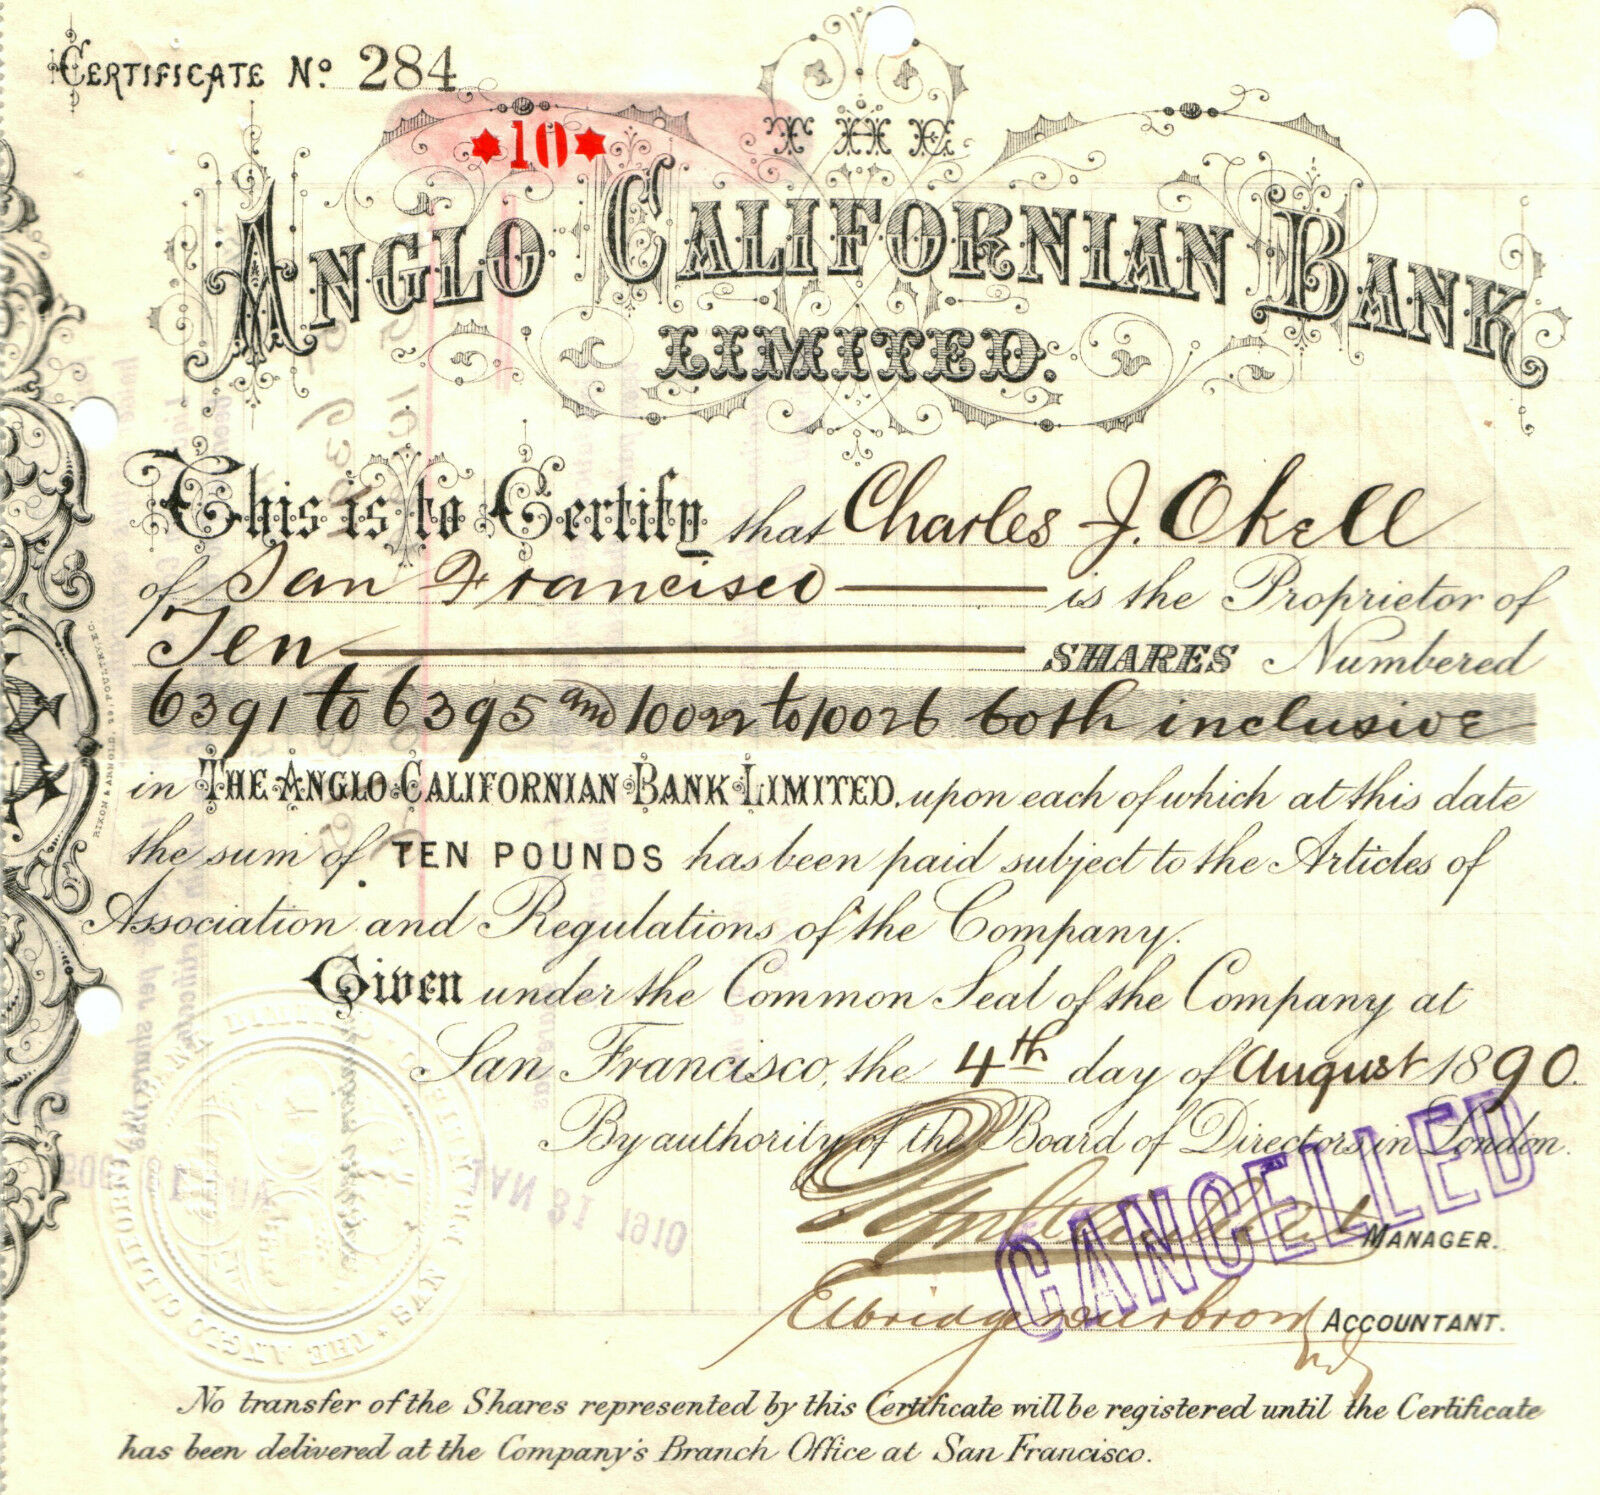 CERTIFICATE No. 284
★10★
THE
ANGLO CALIFORNIAN BANK
LIMITED.
This is to Certify that Charles J. Okell
of San Francisco is the Proprietor of
Ten SHARES Numbered
6391 to 6395 and 10022 to 10026 both inclusive
in THE ANGLO CALIFORNIAN BANK LIMITED, upon each of which at this date
the sum of TEN POUNDS has been paid subject to the Articles of
Association and Regulations of the Company.
Given under the Common Seal of the Company at
San Francisco, the 4th day of August 1890.
By authority of the Board of Directors in London.
MANAGER.
CANCELLED
ACCOUNTANT.
No transfer of the Shares represented by this Certificate will be registered until the Certificate
has been delivered at the Company's Branch Office at San Francisco.